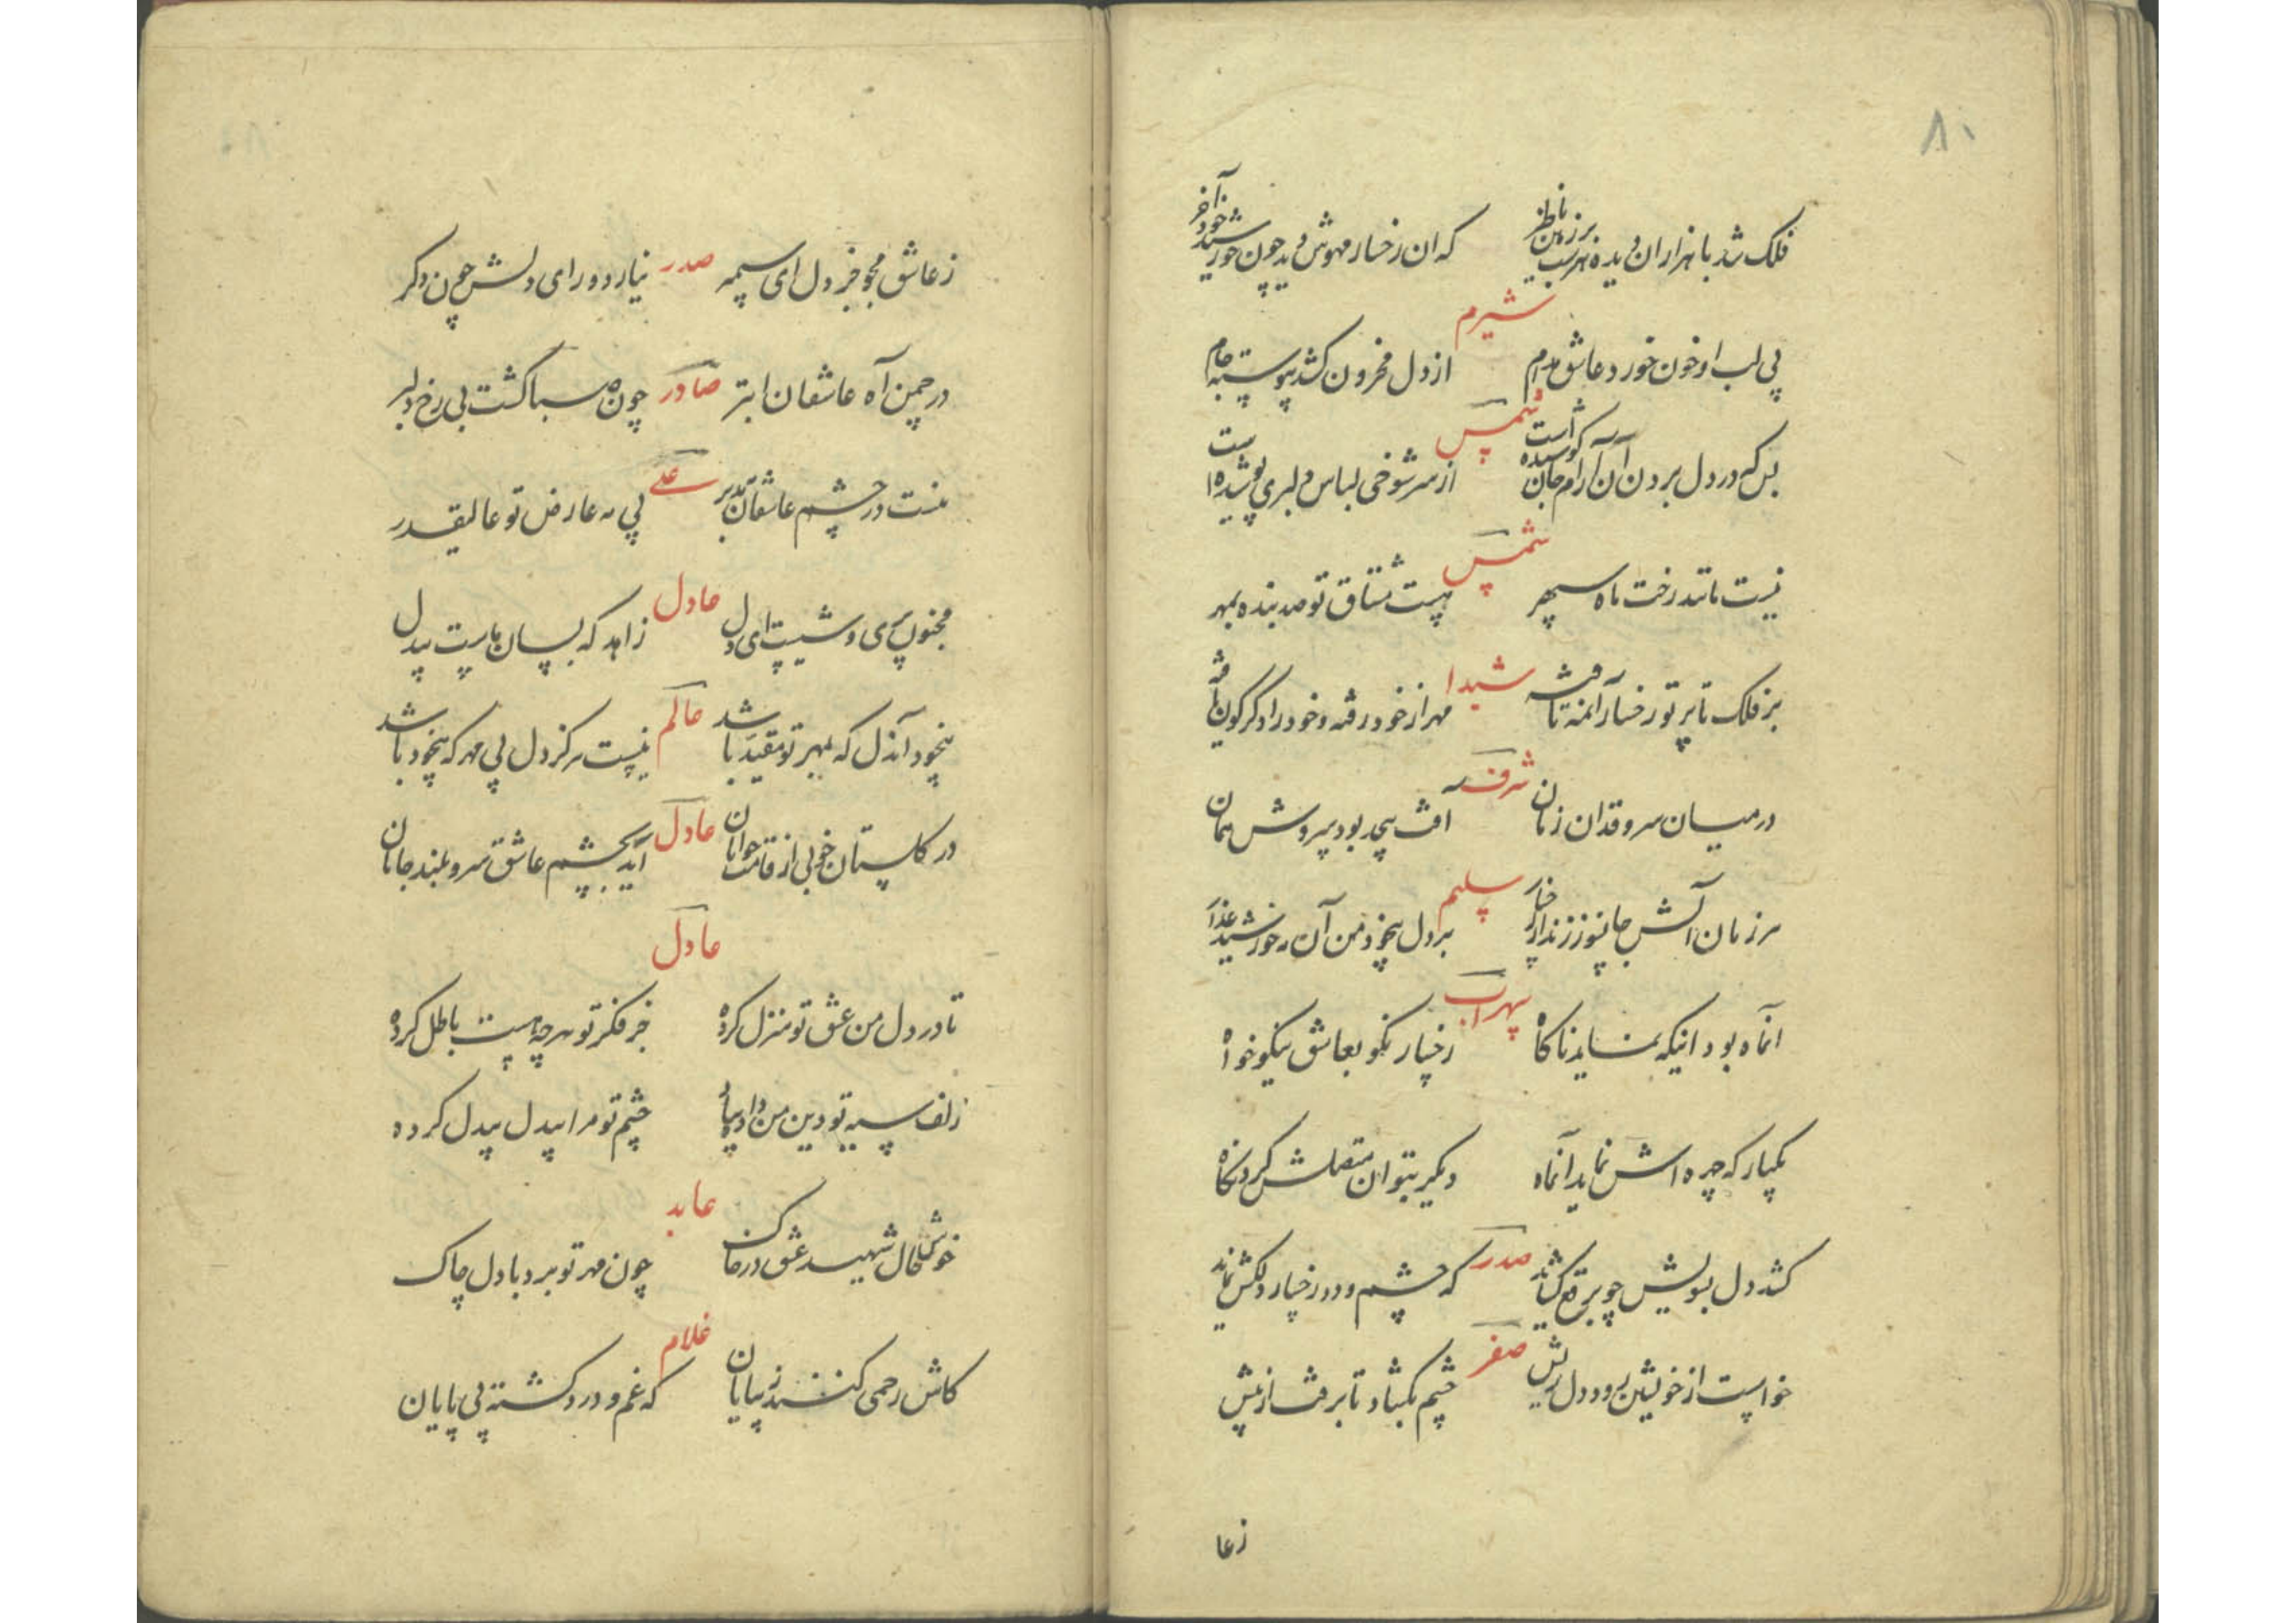 ۸۰
فلک شد با هزاران دیده هر شب بر زمین ناظر که ان رخسار مهوش دید چون خورشید خود آخر
شیرم
پی لب او خون خورد عاشق مدام از دل محزون کشد پیوسته جام
شمس
بس که در دل بردن آن آرام جان کوشیده است از سر شوخی لباس دلبری پوشیده است
شمس
نیست مانند رخت ماه سپهر هست مشتاق تو صد بنده بمهر
شیدا
بر فلک تا پرتو رخسار آنمه تافته مهر از خود رفته و خود را دگرگون یافته
شرف
در میان سرو قدان زمان افت بیحد بود سروش همان
سلیم
هر زمان آتش جانسوز زند از رخسار بر دل بیخود من آن مه خورشید عذار
سهراب
انماه بود انیکه نماید ناکاه رخسار نکو بعاشق نیکو خواه
یکبار که چهره اش نماید آنماه دیگر بتوان متصلش کرد نگاه
صدر
کشد دل بسویش چو برقع کشاند که چشم و دو رخسار دلکش نماید
صفر
خواست از خویشتن رود دل ریش چشم بکشاد تا برفت از پیش
زعا
زعاشق مجو خبر دل ای سیمبر صدر نیارد ورای دلش چون دکر
در چمن آه عاشقان ابتر صادر چون صبا کشت بی رخ دلبر
نیست در چشم عاشقان بدر علی بی مه عارض تو عالیقدر
مجنون پری وشیست ای دل عادل زاهد که بسان ماست بیدل
بیخود آندل که بمهر تو مقید باشد عالم نیست هرگز دل بی مهر که بیخود باشد
در گلستان خوبی از قامت جوانان عادل آید بچشم عاشق سرو بلند جانان
عادل
تا در دل من عشق تو منزل کرده جز فکر تو هر چه هست باطل کرده
زلف سیه تو دین من داد بباد چشم تو مرا بیدل بیدل کرده
عابد
خوش حال شهید عشق در خاک چون مهر تو برد با دل چاک
غلام
کاش رحمی کنند زیبایان که غم و درد کشته بی پایان